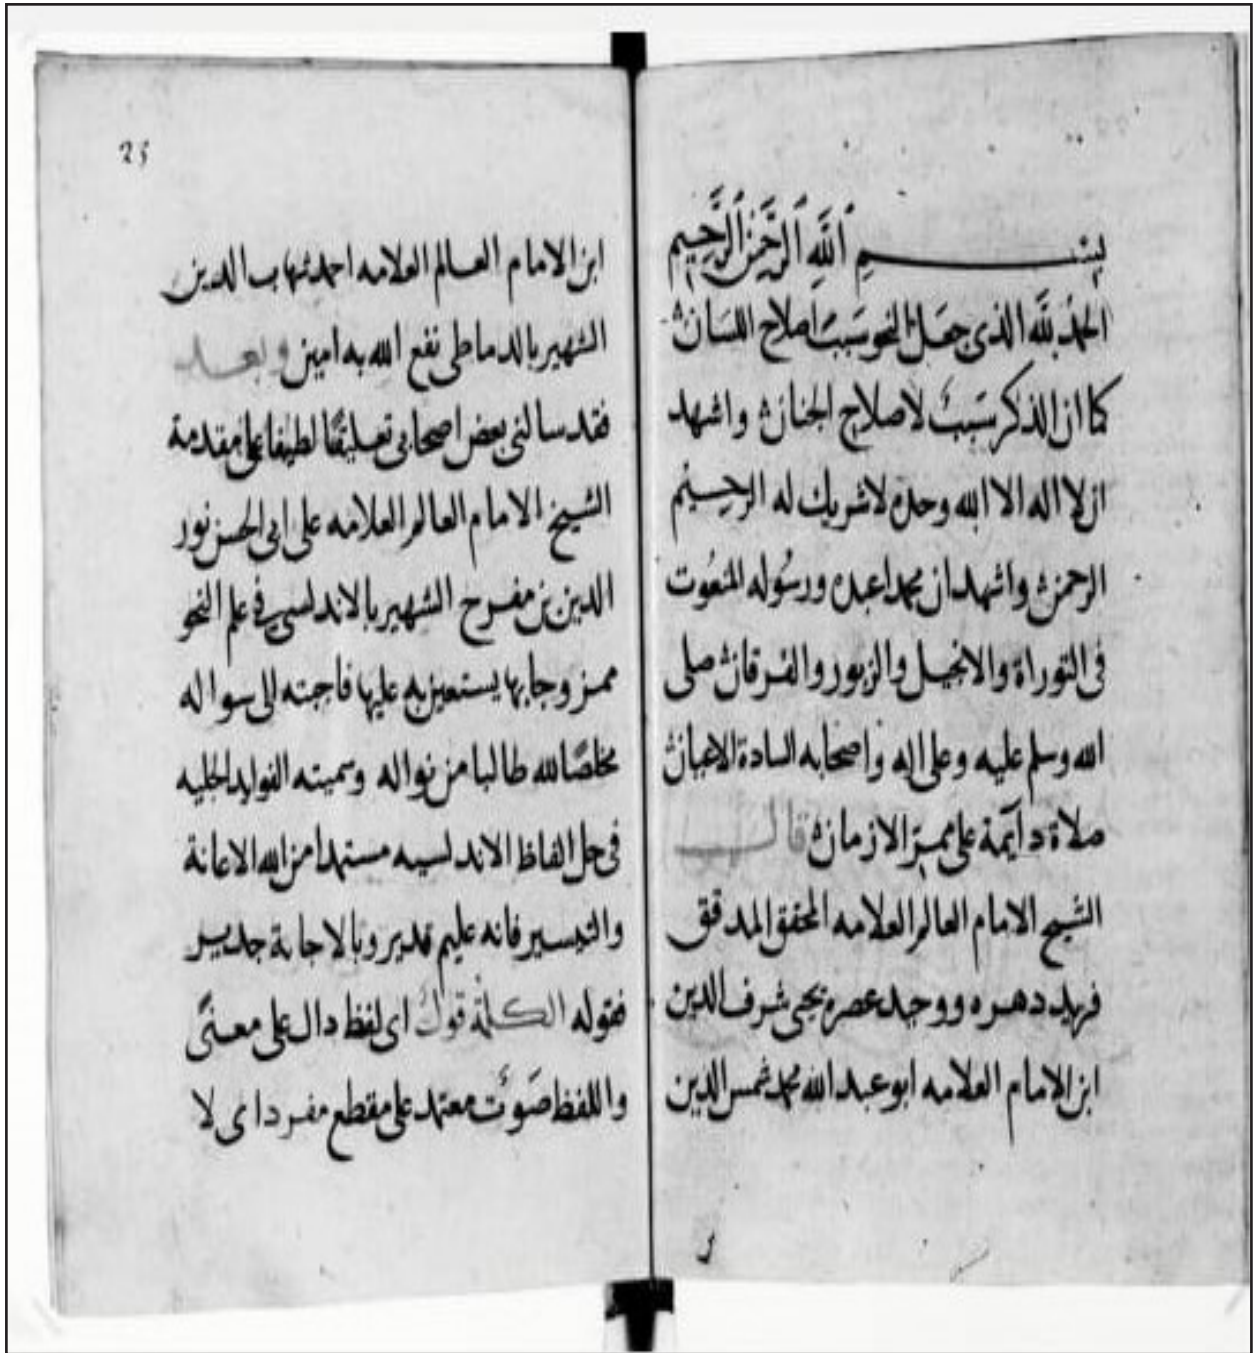 بسم الله الرحمن الرحيم
الحمد لله الذى جعل النحو سببا صلاح اللسان
كما ان الذكر سبب لاصلاح الجنان واشهد
ان لا اله الا الله وحده لا شريك له الرحيم
الرحمن واشهد ان محمدا عبده ورسوله المنعوت
فى التوراة والانجيل والزبور والفرقان صلى
الله وسلم عليه وعلى اله واصحابه السادة الاعيان
صلاة دآيمة على ممر الازمان قال
الشيخ الامام العالم العلامه المحقق المدقق
فريد دهره ووحيد عصره يحيى شرف الدين
ابن الامام العلامه ابو عبد الله محمد شمس الدين
25
ابن الامام العالم العلامه احمد شهاب الدين
الشهير بالدماطى نفع الله به امين وبعد
فقد سالنى بعض اصحابى تعليقا لطيفا على مقدمة
الشيخ الامام العالم العلامه على ابى الحسن نور
الدين بن مفرح الشهير بالاندلسى فى علم النحو
ممزوجا بها يستعين به عليها فاجبته الى سواله
مخلصا لله طالبا من نواله وسميته الفوايد الجليه
فى حل الفاظ الاندلسيه مستمدا من الله الاعانة
والتيسير فانه عليم قدير وبالاجابة جدير
فقوله الكلمة قول اى لفظ دال على معنى
واللفظ صوت معتمد على مقطع مفردا اى لا